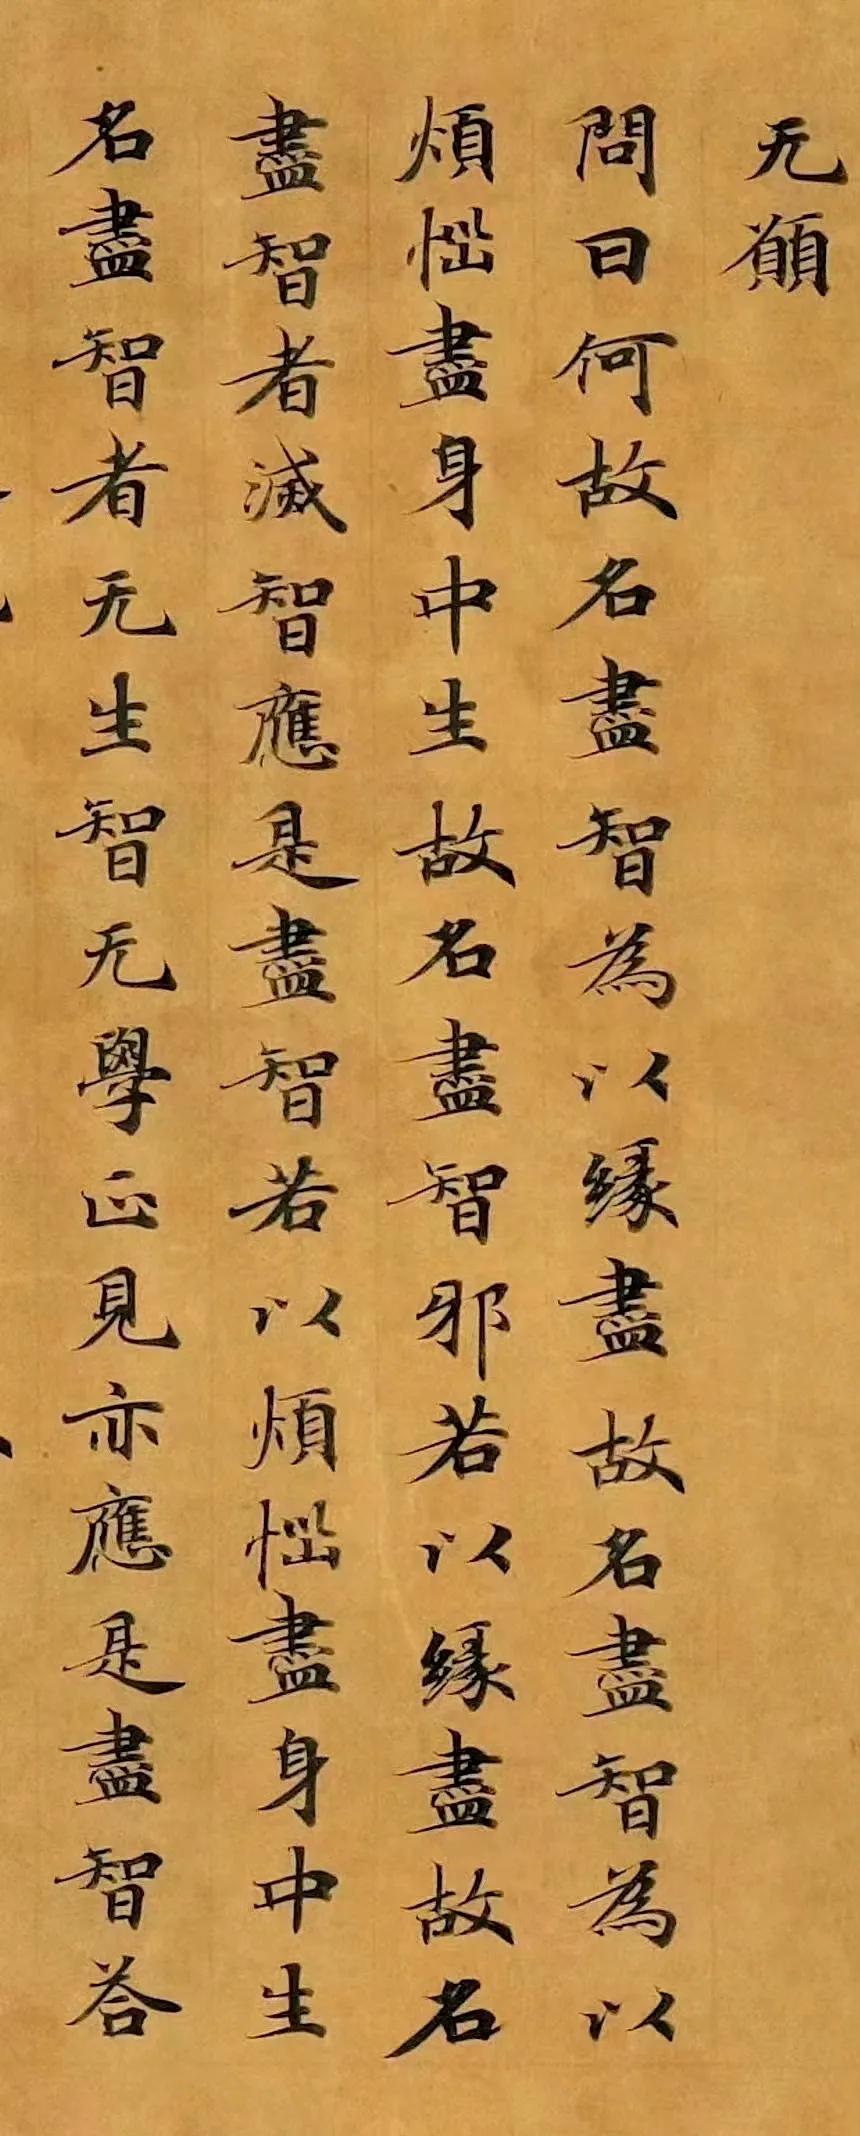 无願
問曰何故名盡智為以緣盡故名盡智為以
煩惱盡身中生故名盡智邪若以緣盡故名
盡智者滅智應是盡智若以煩惱盡身中生
名盡智者无生智无學正見亦應是盡智荅